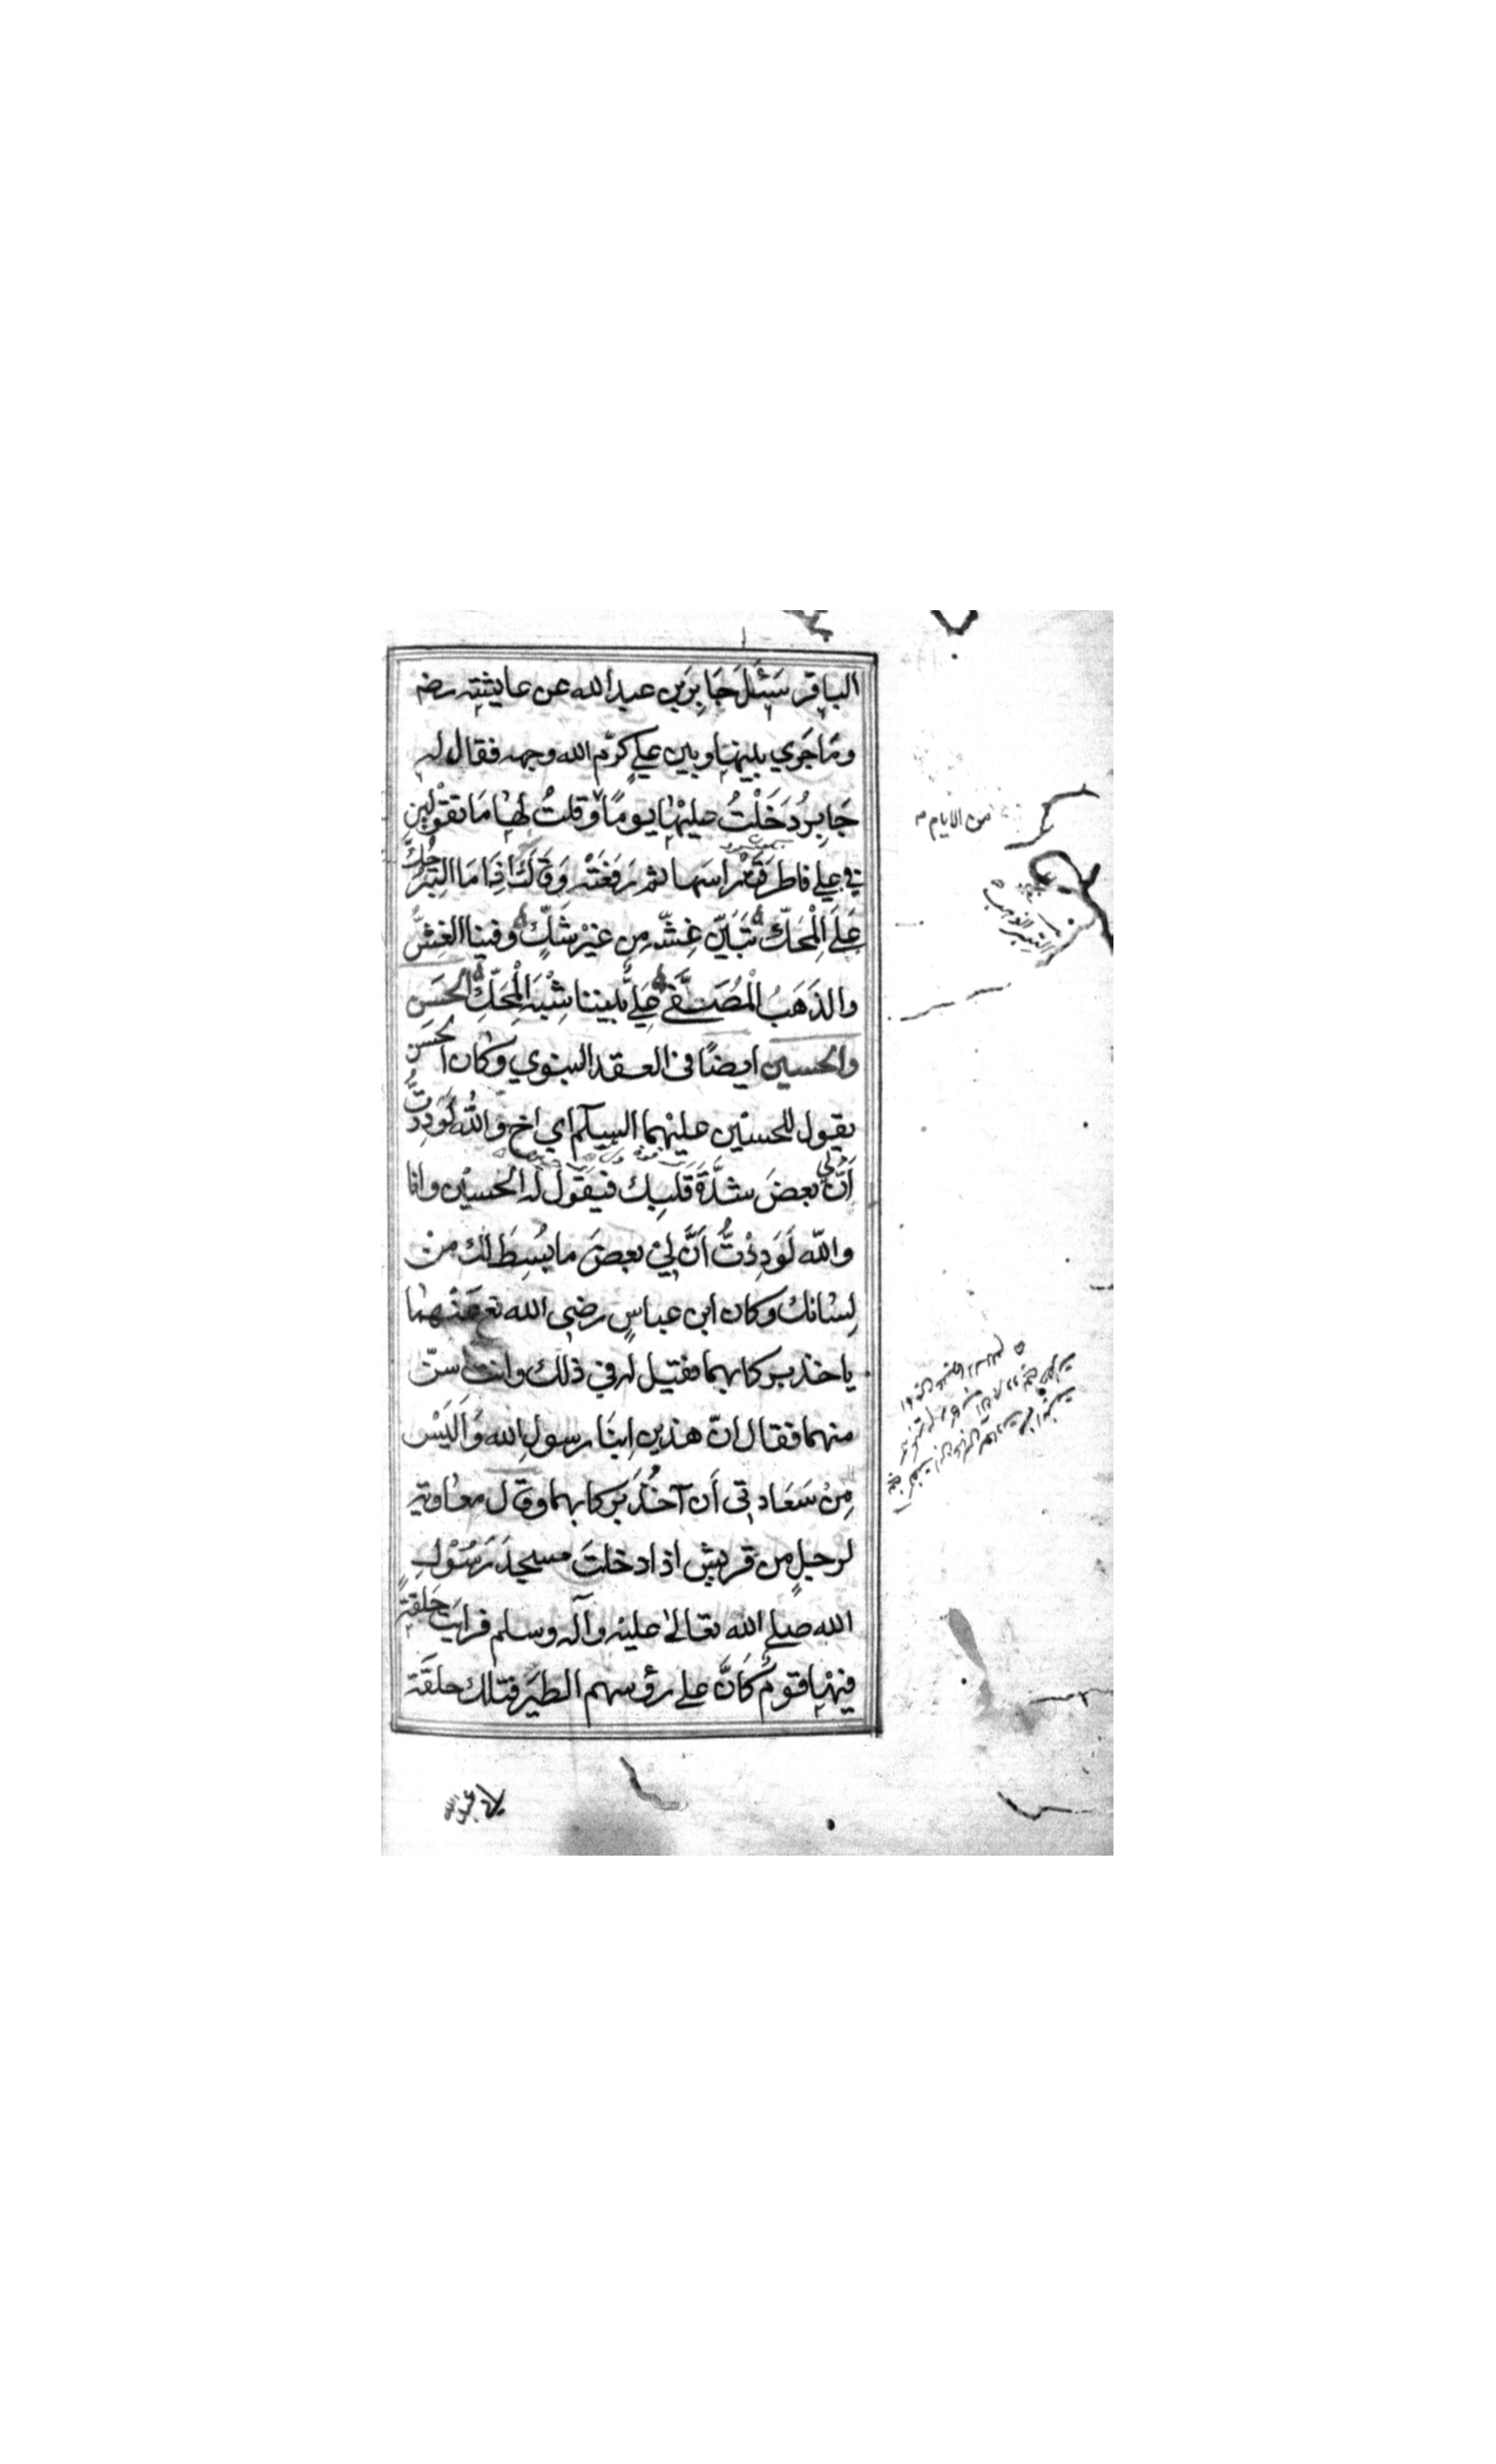 الباقِر سَئَلَ جَابِرَ بن عبد الله عن عايشة رضـ
ومَا جَرى بينها وبين عليٍ كرّم الله وجهه فقال له
جَابِرُ دَخَلْتُ عليْها يومًا وقلتُ لها مَا تقوْلين
في علي فاطرقَتْ راسها ثم رَفَعَتْه وَقَالَتْ اِذَا مَا التِبْرُ حُكَّ
عَلَى الْمِحَكّ تَبَيّن غِشّه مِن غيْر شَكٍّ وفينا الغِشُّ
والذَهَبُ الْمُصَفَّى عَلِيٌّ بيننا شِبْهَ الْمِحَكِّ الحَسَن
والحسين ايضًا في العقد النبوي وكان الحَسَن
يقول للحسين عليهما السلام اي اخ واللهِ لَوَدِدتُّ
اَنّ لي بعضَ شدَّةَ قلبك فيقول له الحسين وانا
والله لَوَدِدْتُّ اَنَّ لِيْ بعضَ ما بُسِطَ لك مِنْ
لِسَانك وكان ابن عباسٍ رضي الله تع عَنْهما
ياخذ بركابهما فقيل له في ذلك وانت اسنّ
منهما فقال انّ هذين اِبنَا رسولِ الله وَاَلَيْسَ
مِنْ سَعَادتي أن آخُذَ بَركابهما وقال معاوية
لرجلٍ من قريش اذا دخلتَ مسجدَ رَسُوْلِ
الله صلى الله تعالى عليه وآله وسلم فرايت حَلقةً
فيها قومٌ كَانَّ على رؤسهم الطيَر فتلك حلقَة
من الايام م
التبر الذهب
لابي عبد الله